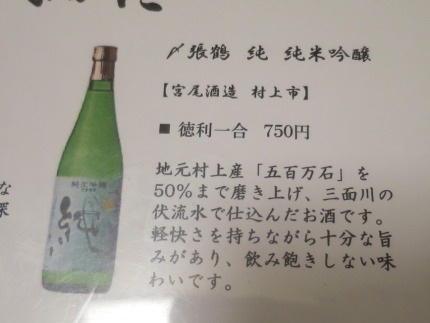 〆張鶴 純 純米吟醸
【宮尾酒造 村上市】
■ 徳利一合 750円
地元村上産「五百万石」を
50%まで磨き上げ、三面川の
伏流水で仕込んだお酒です。
軽快さを持ちながら十分な旨
みがあり、飲み飽きしない味
わいです。
純米吟醸
純
な